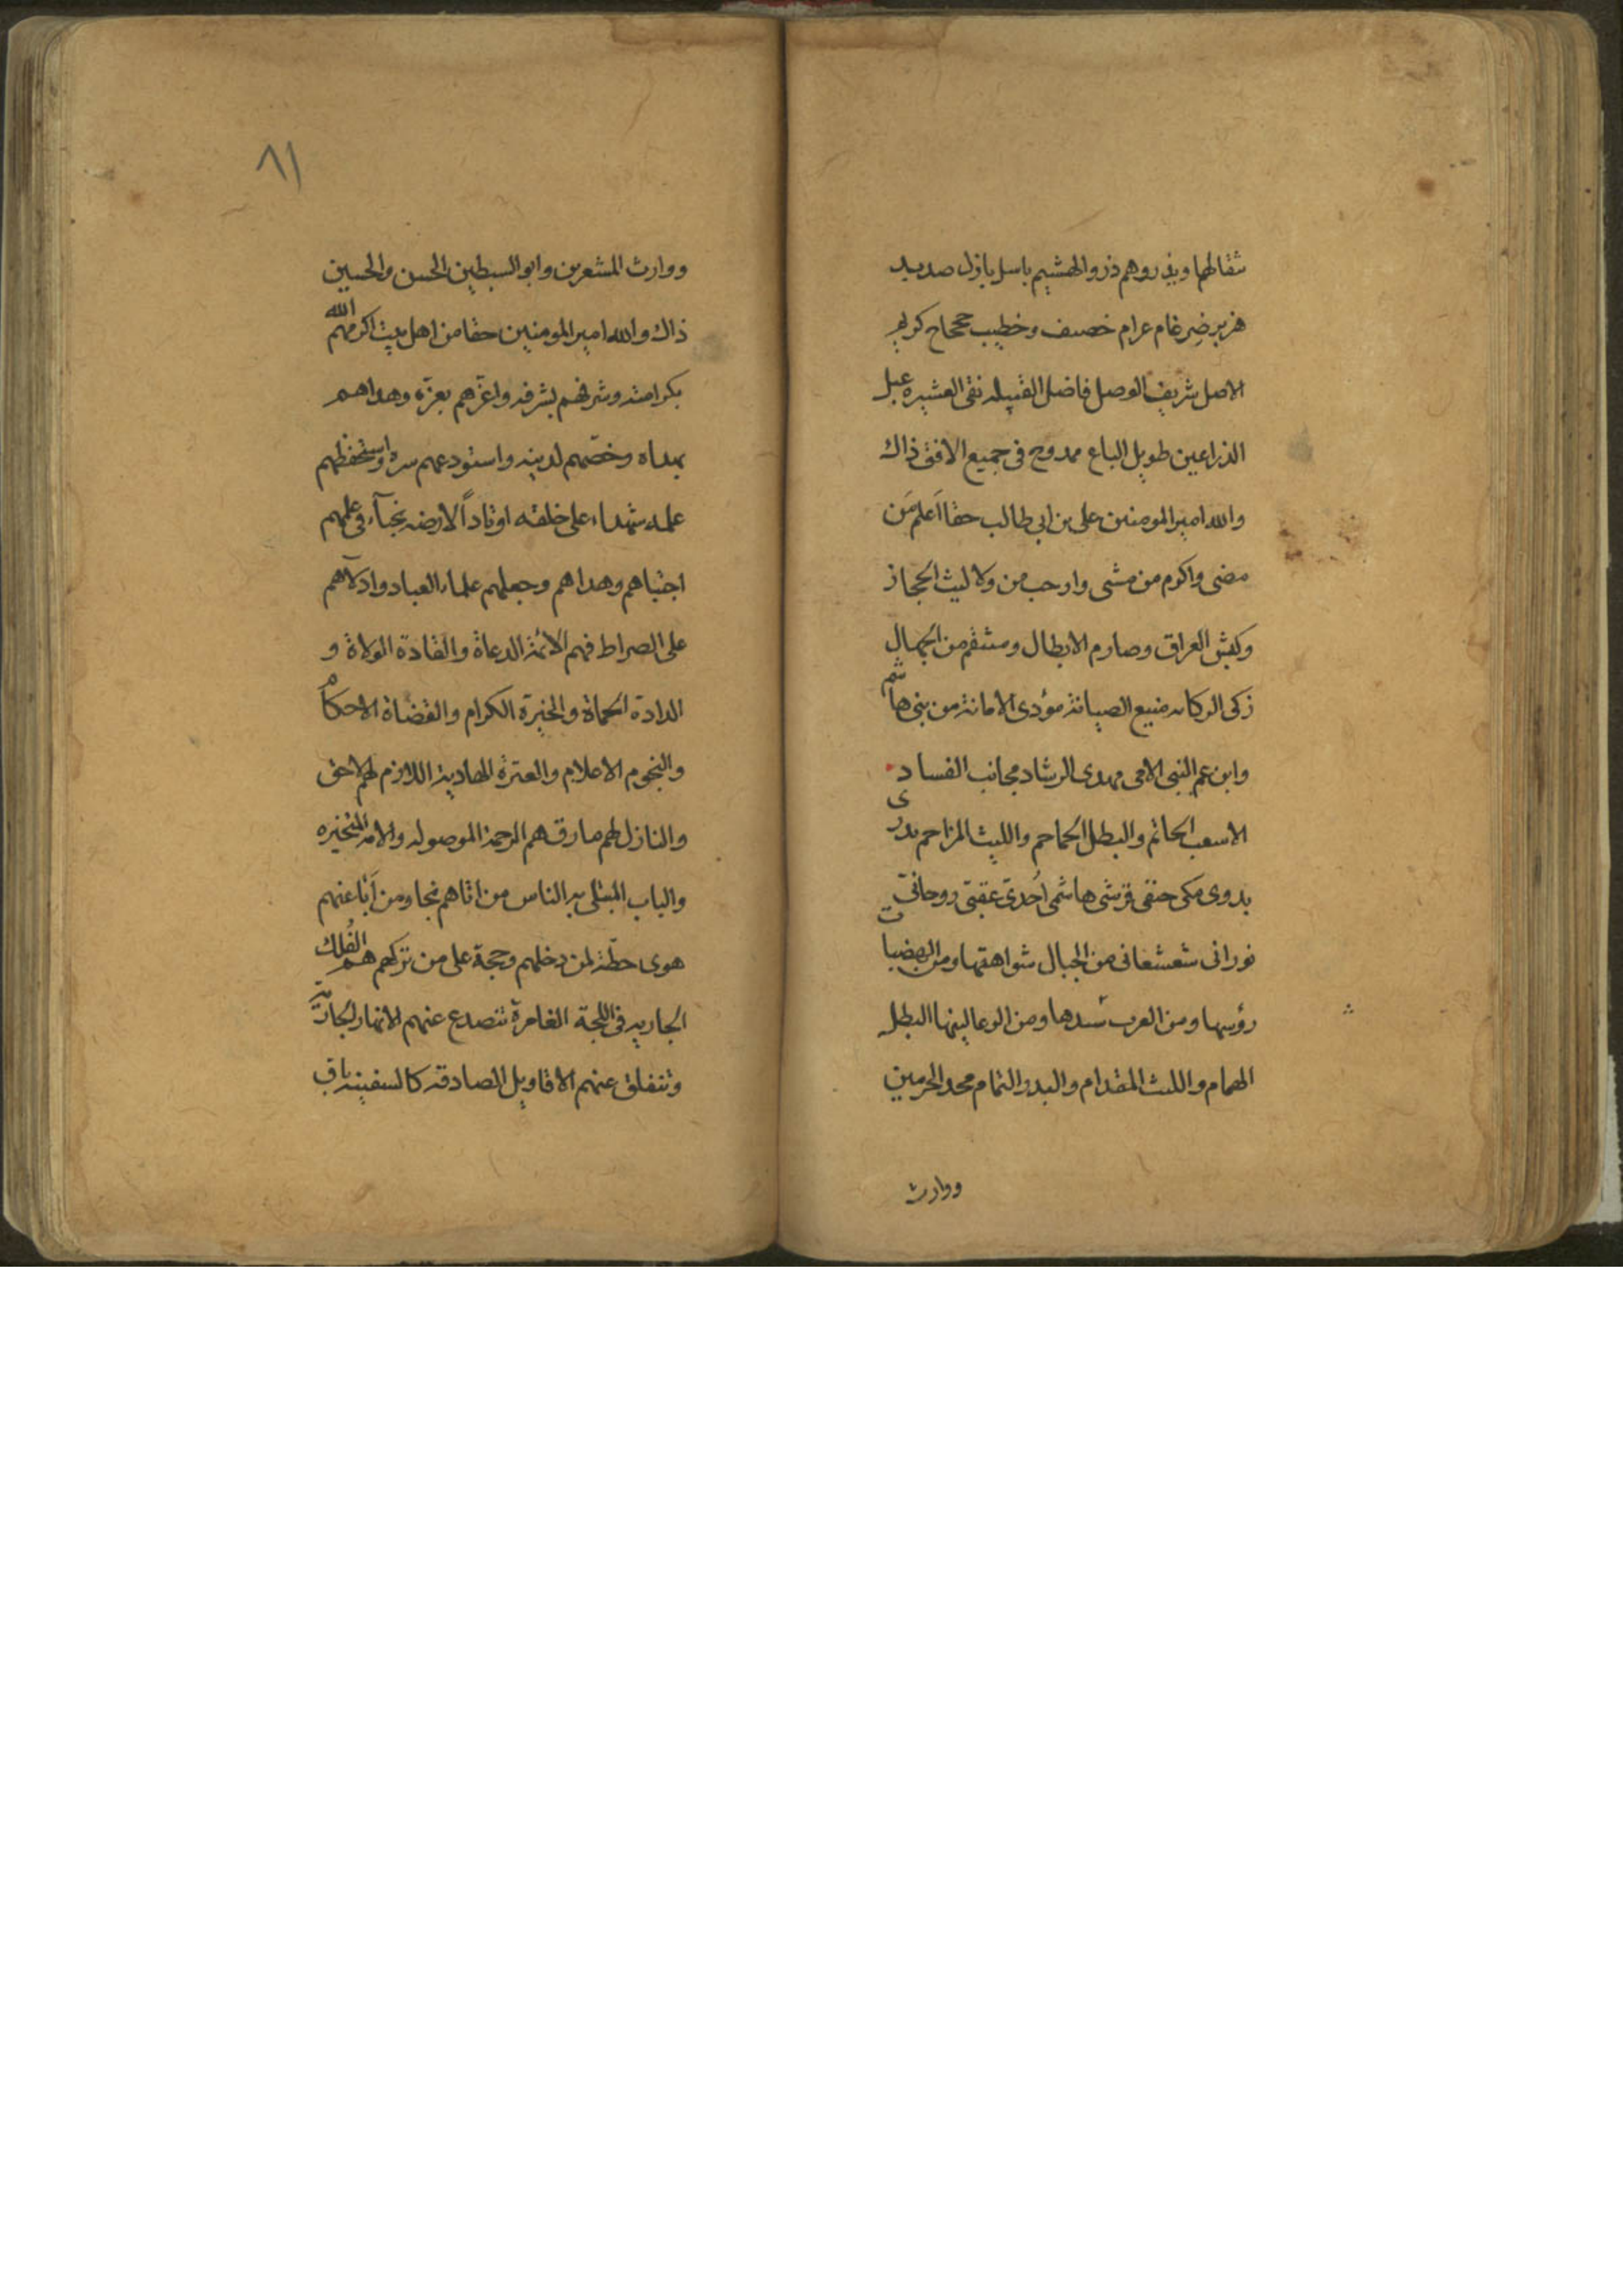 ثقالها ويذروهم ذرو الهشيم باسل بازل صديد
هزبر ضرغام عرام خصيف وخطيب حجحاح كريم
الاصل شريف الوصل فاضل القبيله نقى العشيره عبل
الذراعين طويل الباع ممدوح فى جميع الافق ذاك
والله امير المومنين على بن ابى طالب حقا اَعلم مَن
مضى واكرم من مشى واوحب من ولا ليث الحجاز
وكبش العراق وصارم الابطال ومنتقم من الجهال
زكى الركانه منيع الصيانة مؤدى الامانة من بنى هاشم
وابن عم النبى الامى مهدى الرشاد مجانب الفساد
الاسعب الحاتم والبطل الحماحم والليث المزاحم بدرى
بدوى مكى حنفى قرشى هاشمى اُحدىّ عقبىّ روحانىّ
نورانى شعشعانى من الجبال شواهقها ومن الهضبات
رؤسها ومن العرب سيدها ومن الوعا ليثها البطل
الهمام والليث المقدام والبدر التمام محد الحرمين
ووارث
٨١
ووارث المشعرين وابو السبطين الحسن والحسين
ذاك والله امير المومنين حقا من اهل بيت اكرمهم الله
بكرامته وشرفهم بشرفه واعزّهم بعزّه وهداهم
بهداه وخصّهم لدينه واستودعهم سره واستحفظهم
علمه شهداء على خلقه اوتاداً لارضه نجباء فى علمهم
اجتباهم وهداهم وجعلهم علماء العباد وادلآهم
على الصراط فهم الائمة الدعاة والقادة الولاة و
الدادة الحماة والخيرة الكرام والقضاة الاحكام
والنجوم الاعلام والعترة الهادية اللازم لهم لاحق
والنازل لهم مارق هم الرحمة الموصوله والامه المتخيره
والباب المبتلى به الناس من اتاهم نجا ومن اَبَا عنهم
هوى حطّة لمن دخلهم وحجة على من تركهم هم الفُلك
الجاريه فى اللجة الغامرة تتصدع عنهم الانهار الجارية
وتنفلق عنهم الاقاويل الصادقه كالسفينه باق